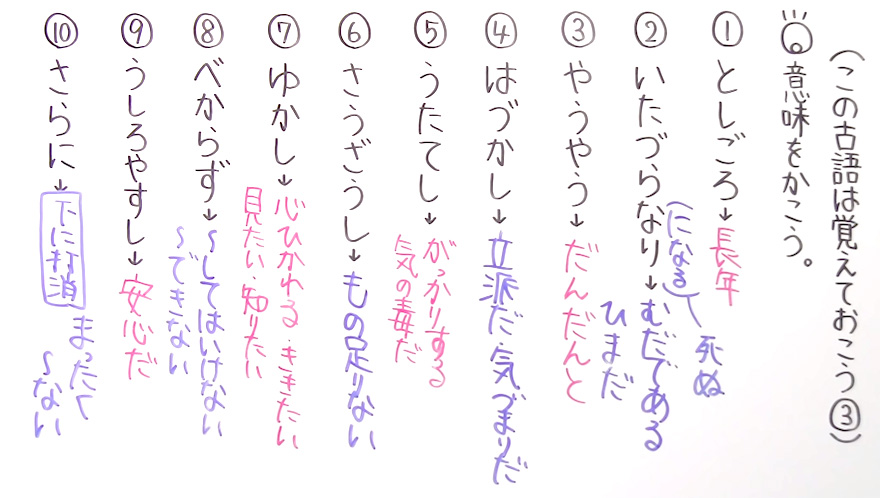 (この古語は覚えておこう③)
意味をかこう。
①としごろ→長年
②いたづらなり→むだである
ひまだ
(になる)
死ぬ
③やうやう→だんだんと
④はづかし→立派だ・気づまりだ
⑤うたてし→がっかりする
気の毒だ
⑥さうざうし→もの足りない
⑦ゆかし→心ひかれる・ききたい
見たい・知りたい
⑧べからず→～してはいけない
～できない
⑨うしろやすし→安心だ
⑩さらに→下に打消
まったく
～ない